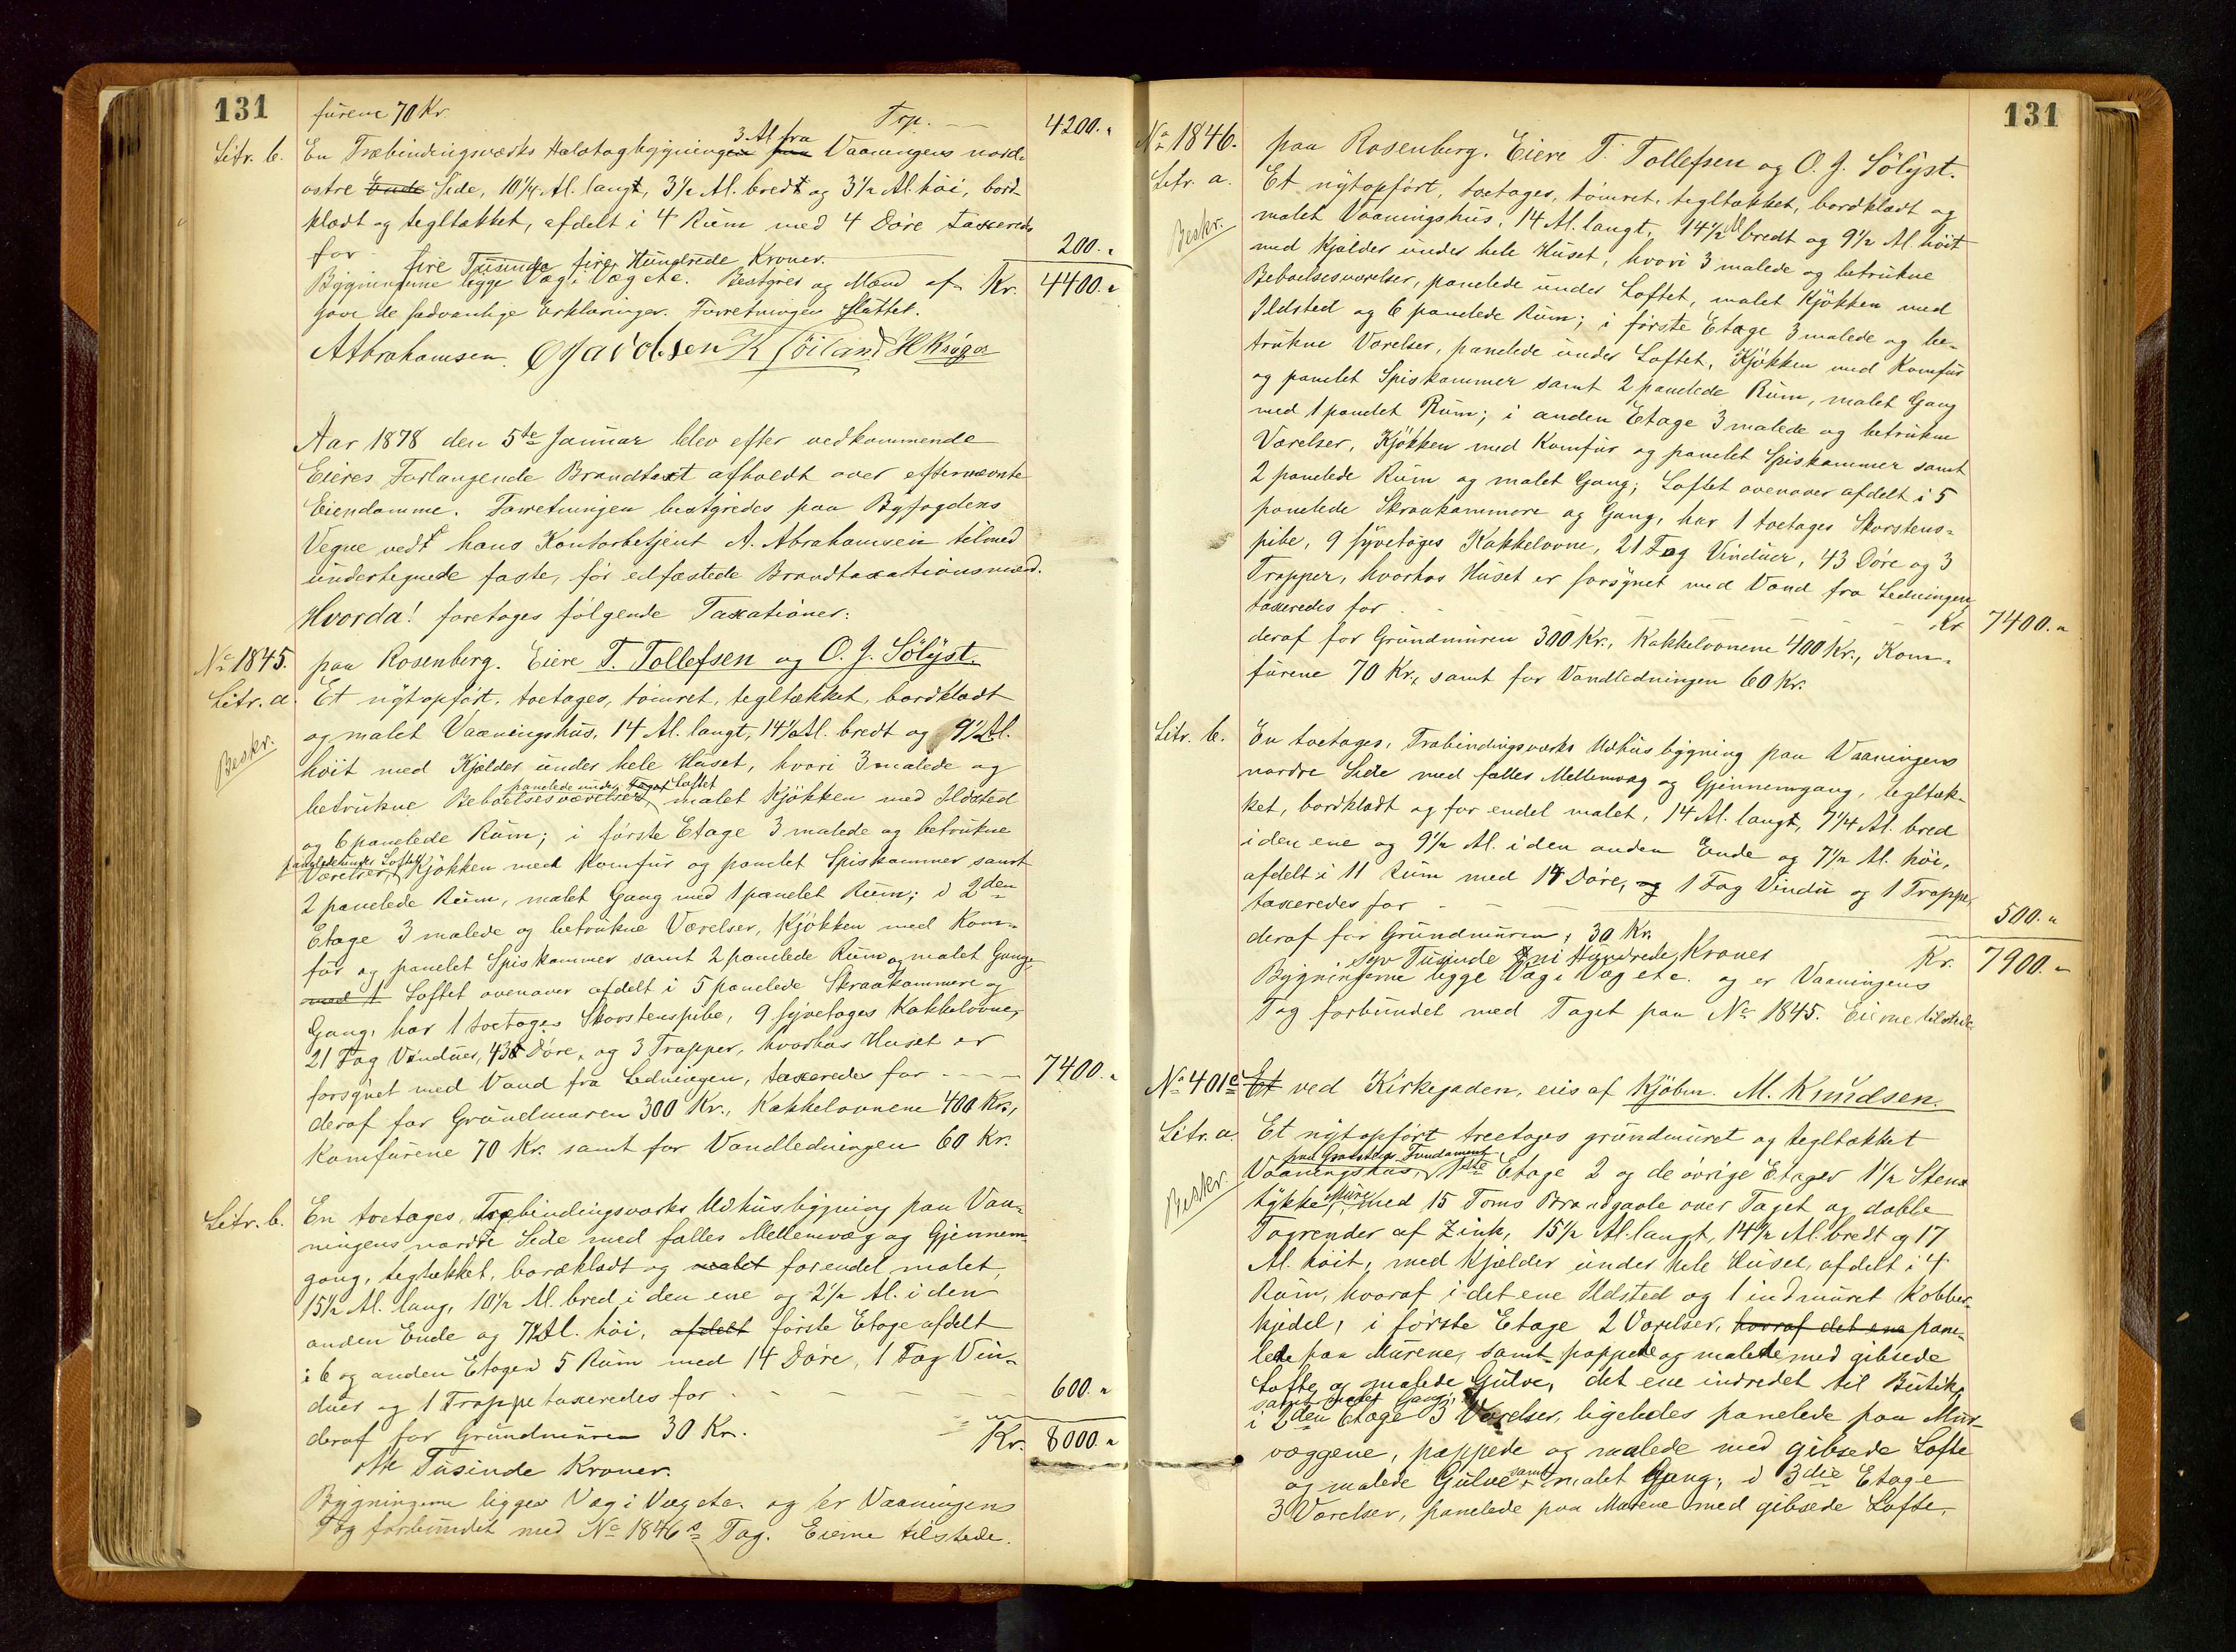 131
furene 70 Kr. Trp. — 4200. "
Litr. b. En Træbindingsværks Halvtagbygning 3 Al. fra Vaaningens nord-
østre Ende Side, 10 1/4 Al. langt, 3 1/2 Al. bredt og 3 1/2 Al. høi, bord-
klædt og tegltækket, afdelt i 4 Rum med 4 Døre taxeredes
for 200. "
fire Tusinde fire Hundrede Kroner.
Bygningerne ligge Væg i Væg etc. Bestyrer og Mænd af- Kr. 4400. "
gave de sædvanlige Erklæringer. Forretningen sluttet.
A Abrahamsen. O Jacobsen K Höiland H Krüger
Aar 1878 den 5te Januar blev efter vedkommende
Eieres Forlangende Brandtaxt afholdt over efternævnte
Eiendomme. Forretningen bestyredes paa Byfogdens
Vegne vedt hans Kontorbetjent A. Abrahamsen tilmed
undertegnede faste, før edfæstede Brandtaxationsmænd.
Hvorda! foretoges følgende Taxationer:
No 1845. paa Rosenberg. Eiere T. Tollefsen og O. J. Sölyst.
Litr. a. Et nytopført, toetages, tømret, tegltækket, bordklædt
og malet Vaaningshus, 14 Al. langt, 14 1/2 Al. bredt og 9 1/2 Al.
Beskr.
høit med Kjælder under hele Huset, hvori 3 malede og
panelede under Taget Loftet
betrukne Beboelsesværelser, malet Kjøkken med Ildsted
og 6 panelede Rum; i første Etage 3 malede og betrukne
panelede under Loftet
Værelser, Kjøkken med Komfur og panelet Spiskammer samt
2 panelede Rum, malet Gang med 1 panelet Rum; i 2den
Etage 3 malede og betrukne Værelser, Kjøkken med Kom-
fur og panelet Spiskammer samt 2 panelede Rum og malet Gang,
med 1 Loftet ovenover afdelt i 5 panelede Skraakammere og
Gang, har 1 toetages Skorstenspibe, 9 fyvetages Kakkelovne,
21 Fag Vinduer, 43 Døre, og 3 Trapper, hvorhos Huset er
forsynet med Vand fra Ledningen, taxeredes for - - - 7400. "
deraf for Grundmuren 300 Kr., Kakkelovnene 400 Kr.,
Komfurene 70 Kr. samt for Vandledningen 60 Kr.
Litr. b. En toetages, Træbindingsværks Udhusbygning paa Vaa-
ningens nordre Side med fælles Mellemvæg og Gjennem-
gang, tegltækket, bordklædt og malet forendel malet,
15 1/2 Al. lang, 10 1/2 Al. bred i den ene og 2 1/2 Al. i den
anden Ende og 7 1/2 Al. høi, afdelt første Etage afdelt
i 6 og anden Etage i 5 Rum med 14 Døre, 1 Fag Vin-
duer og 1 Trappe taxeredes for - - - 600. "
deraf for Grundmuren 30 Kr. Kr. 8000. "
otte Tusinde Kroner.
Bygningerne ligger Væg i Væg etc. og er Vaaningens
Tag forbundet med No 1846s Tag. Eierne tilstede.
131
No 1846. paa Rosenberg. Eiere T. Tollefsen og O. J. Sölyst.
Litr. a. Et nytopført, toetages, tømret, tegltækket, bordklædt og
Beskr.
malet Vaaningshus, 14 Al. langt, 14 1/2 Al. bredt og 9 1/2 Al. høit
med Kjælder under hele Huset, hvori 3 malede og betrukne
Beboelsesværelser, panelede under Loftet, malet Kjøkken med
Ildsted og 6 panelede Rum; i første Etage 3 malede og be-
trukne Værelser, panelede under Loftet, Kjøkken med Komfur
og panelet Spiskammer samt 2 panelede Rum, malet Gang
med 1 panelet Rum; i anden Etage 3 malede og betrukne
Værelser, Kjøkken med Komfur og panelet Spiskammer samt
2 panelede Rum og malet Gang; Loftet ovenover afdelt i 5
panelede Skraakammere og Gang, har 1 toetages Skorstens-
pibe, 9 fyvetages Kakkelovne, 21 Fag Vinduer, 43 Døre og 3
Trapper, hvorhos Huset er forsynet med Vand fra Ledningen,
taxeredes for - - - Kr. 7400. "
deraf for Grundmuren 300 Kr., Kakkelovnene 400 Kr., Kom-
furene 70 Kr., samt for Vandledningen 60 Kr.
Litr. b. En toetages, Træbindingsværks Udhusbygning paa Vaaningens
nordre Side med fælles Mellemvæg og Gjennemgang, tegltæk-
ket, bordklædt og for endel malet, 14 Al. langt, 7 1/4 Al. bred
i den ene og 9 1/2 Al. i den anden Ende og 7 1/2 Al. høi,
afdelt i 11 Rum med 14 Døre, og 1 Fag Vindu og 1 Trappe,
taxeredes for - - - 500. "
deraf for Grundmuren, 30 Kr.
Syv Tusinde ni Hundrede Kroner Kr. 7900. "
Bygningerne ligge Væg i Væg etc. og er Vaaningens
Tag forbundet med Taget paa No 1845. Eierne tilstede
No 401e Et ved Kirkegaden, eies af Kjøbm. M. Knudsen.
Litr. a. Et nytopført treetages grundmuret og tegltækket
paa Graastens Fundament
Beskr.
Vaaningshus, 1ste Etage 2 og de øvrige Etager 1 1/2 Stens
tykke Mure, med 15 Toms Brandgavle over Taget og dobble
Tagrender af Zink, 15 1/2 Al. langt, 14 1/2 Al. bredt og 17
Al. høit, med Kjælder under hele Huset, afdelt i 4
Rum, hvoraf i det ene Ildsted og 1 indmuret Kobber-
kjedel, i første Etage 2 Værelser, hvoraf det ene pane-
lede paa Murene, samt pappede og malede med gibsede
Lofte og malede Gulve, det ene indredet til Butik,
samt malet Gang,
i 2den Etage 3 Værelser, ligeledes panelede paa Mur-
væggene, pappede og malede med gibsede Lofte
og malede Gulve samt malet Gang; i 3die Etage
3 Værelser, panelede paa Murene med gibsede Lofte,